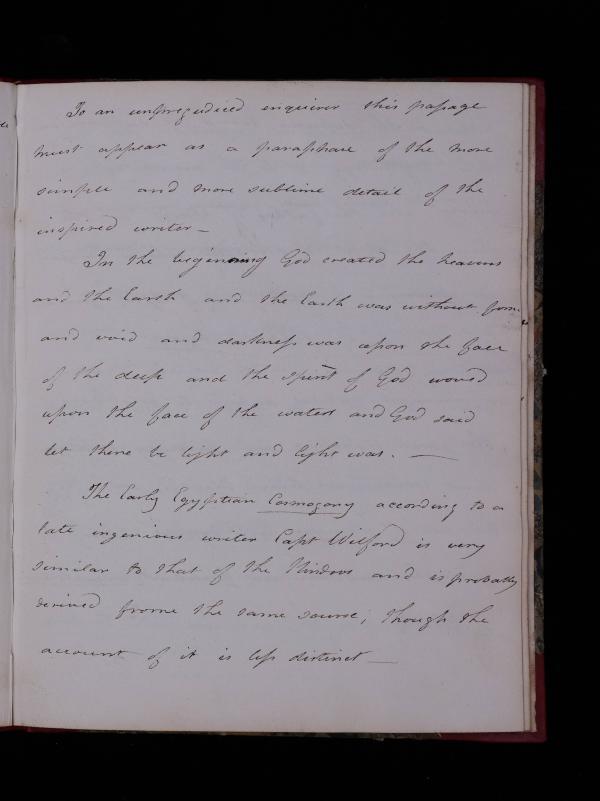 To an unprejudiced enquirer this passage
must appear as a paraphrase of the more
simple and more sublime detail of the
inspired writer —
In the beginning God created the heavens
and the Earth and the Earth was without form
and void and darkness was upon the face
of the deep and the spirit of God moved
upon the face of the waters and God said
let there be light and light was. —
The Early Egyptian Cosmogony according to a
late ingenious writer Capt Wilford is very
similar to that of the Hindoos and is probably
derived frome the same source; though the
account of it is less distinct —